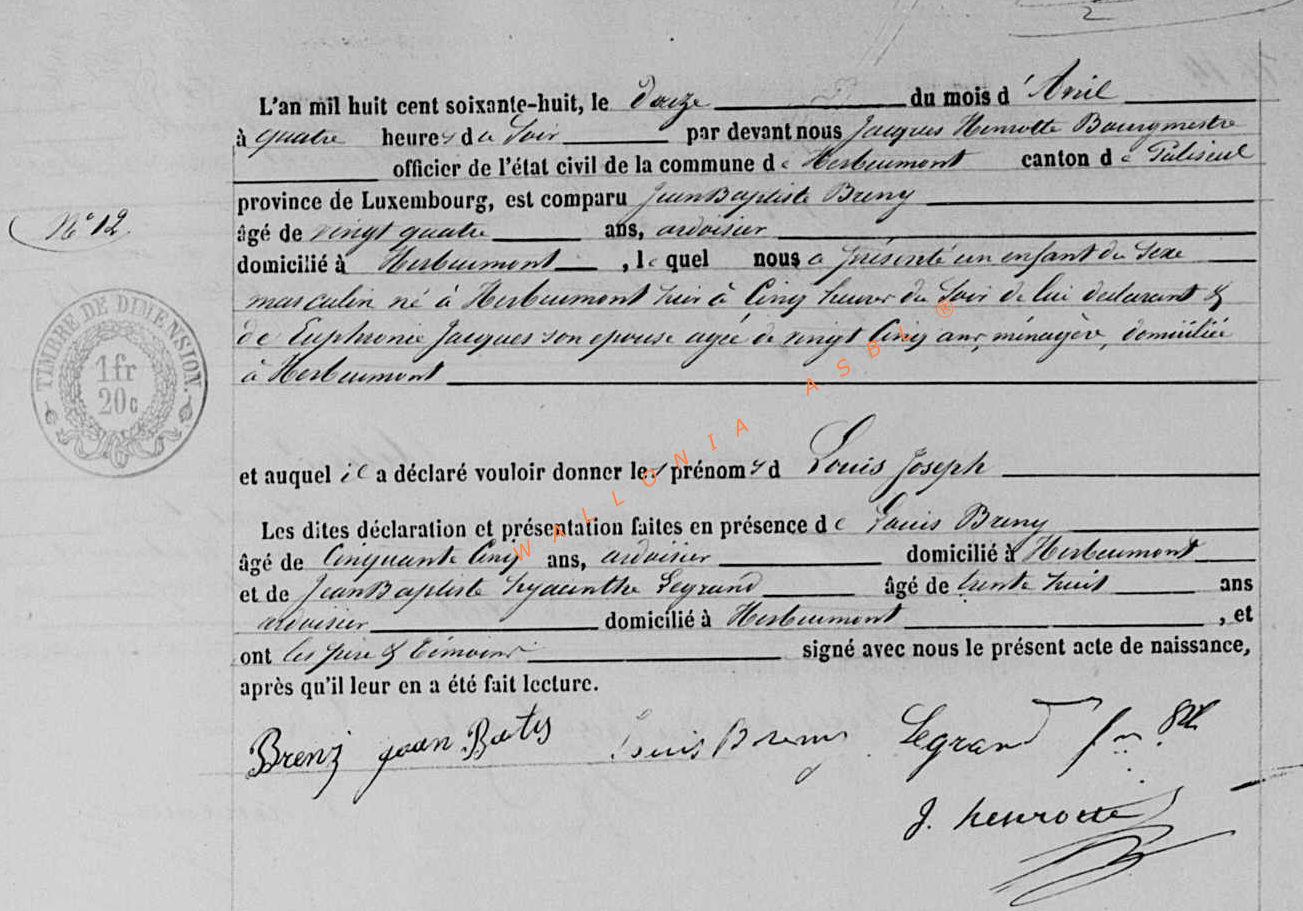 2
L'an mil huit cent soixante-huit, le Douze du mois d'Avril
à quatre heures du Soir par devant nous Jacques Henrotte Bourgmestre
officier de l'état civil de la commune de Herbeumont canton de Paliseul
province de Luxembourg, est comparu Jean Baptiste Breny
N° 12.
âgé de vingt quatre ans, ardoisier
domicilié à Herbeumont, le quel nous a présenté un enfant du Sexe
masculin né à Herbeumont hier à Cinq heures du Soir de lui declarant &
de Euphronie Jacques son epouse agée de vingt Cinq ans, ménagère, domiciliée
à Herbeumont
TIMBRE DE DIMENSION.
1fr
20c
et auquel il a déclaré vouloir donner les prénoms d Louis Joseph
Les dites déclaration et présentation faites en présence de Louis Breny
âgé de Cinquante Cinq ans, ardoisier domicilié à Herbeumont
et de Jean Baptiste hyacinthe Legrand âgé de trente huit ans
ardoisier domicilié à Herbeumont, et
ont les père & témoins signé avec nous le présent acte de naissance,
après qu'il leur en a été fait lecture.
Breny jean Batis Louis Breny Legrand
J. henrotte
WALLONIA ASBL ®